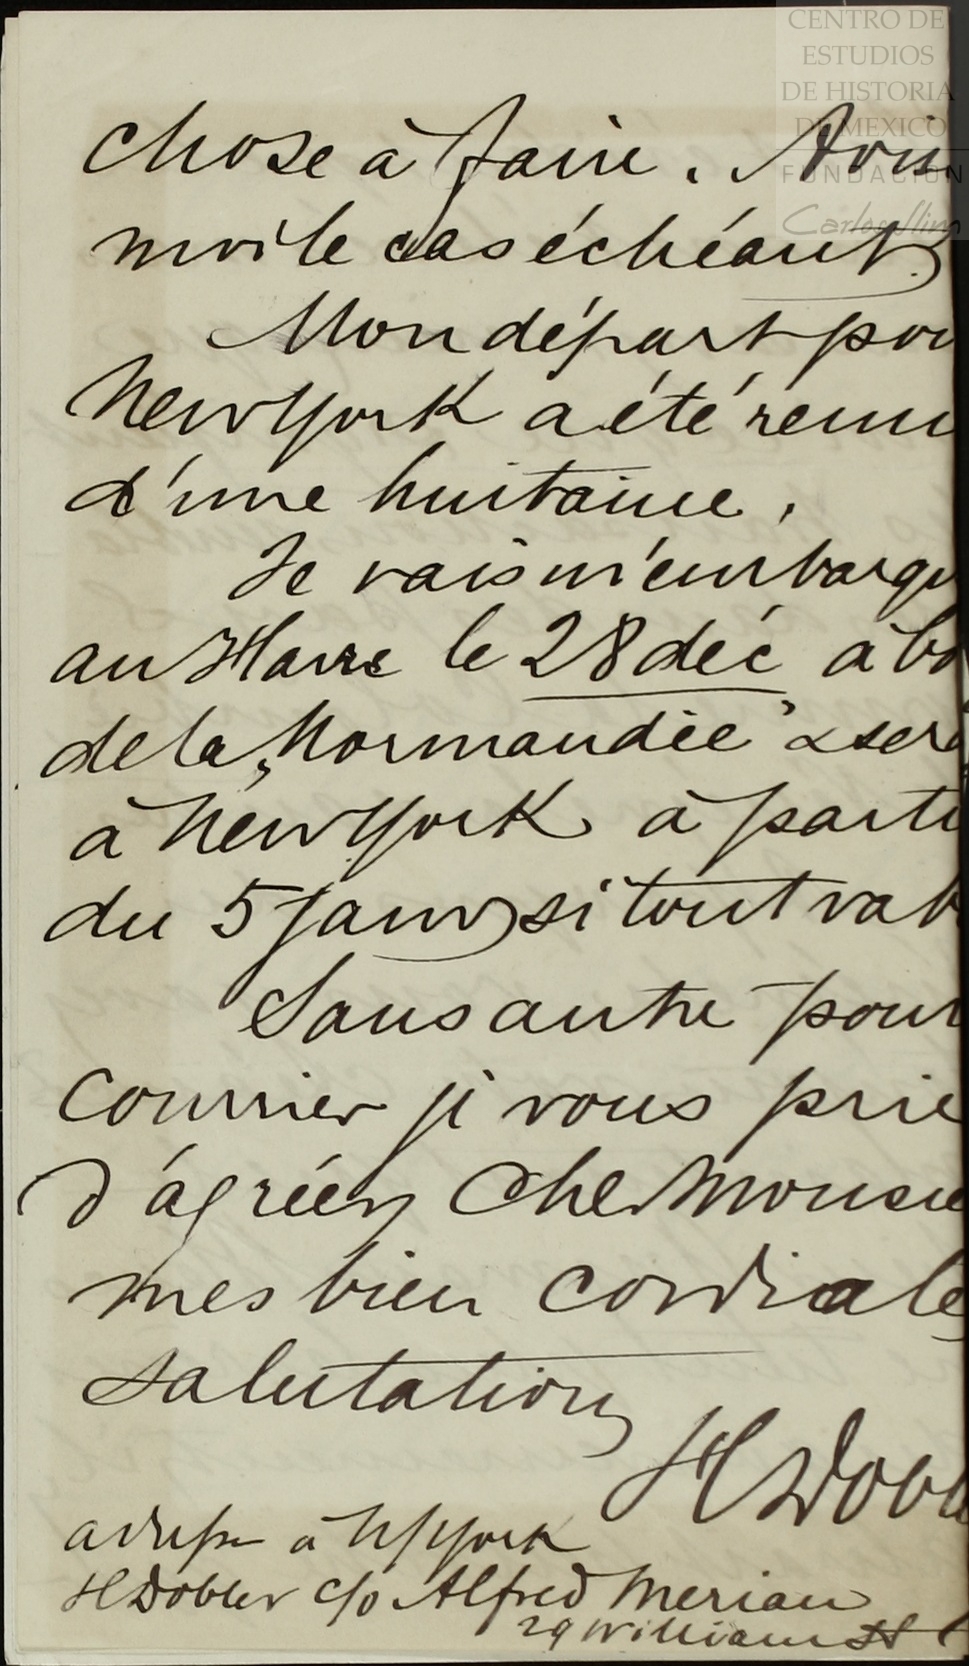 CENTRO DE
ESTUDIOS
DE HISTORIA
DE MEXICO
FUNDACIÓN
Carlos Slim
chose à faire. Avis
moi le cas échéant.
Mon départ pou
New York a été remi
d'une huitaine.
Je vais m'embarqu
au Havre le 28 déc à bo
de la „Normandie" & sera
à New York à parti
du 5 Janv, si tout va b
Sans autre pour
Courrier je vous prie
d'agréer Cher Monsie
mes bien cordiales
salutations
H Dobl
adresse à N/York
H Dobler c/o Alfred Merian
29 William St